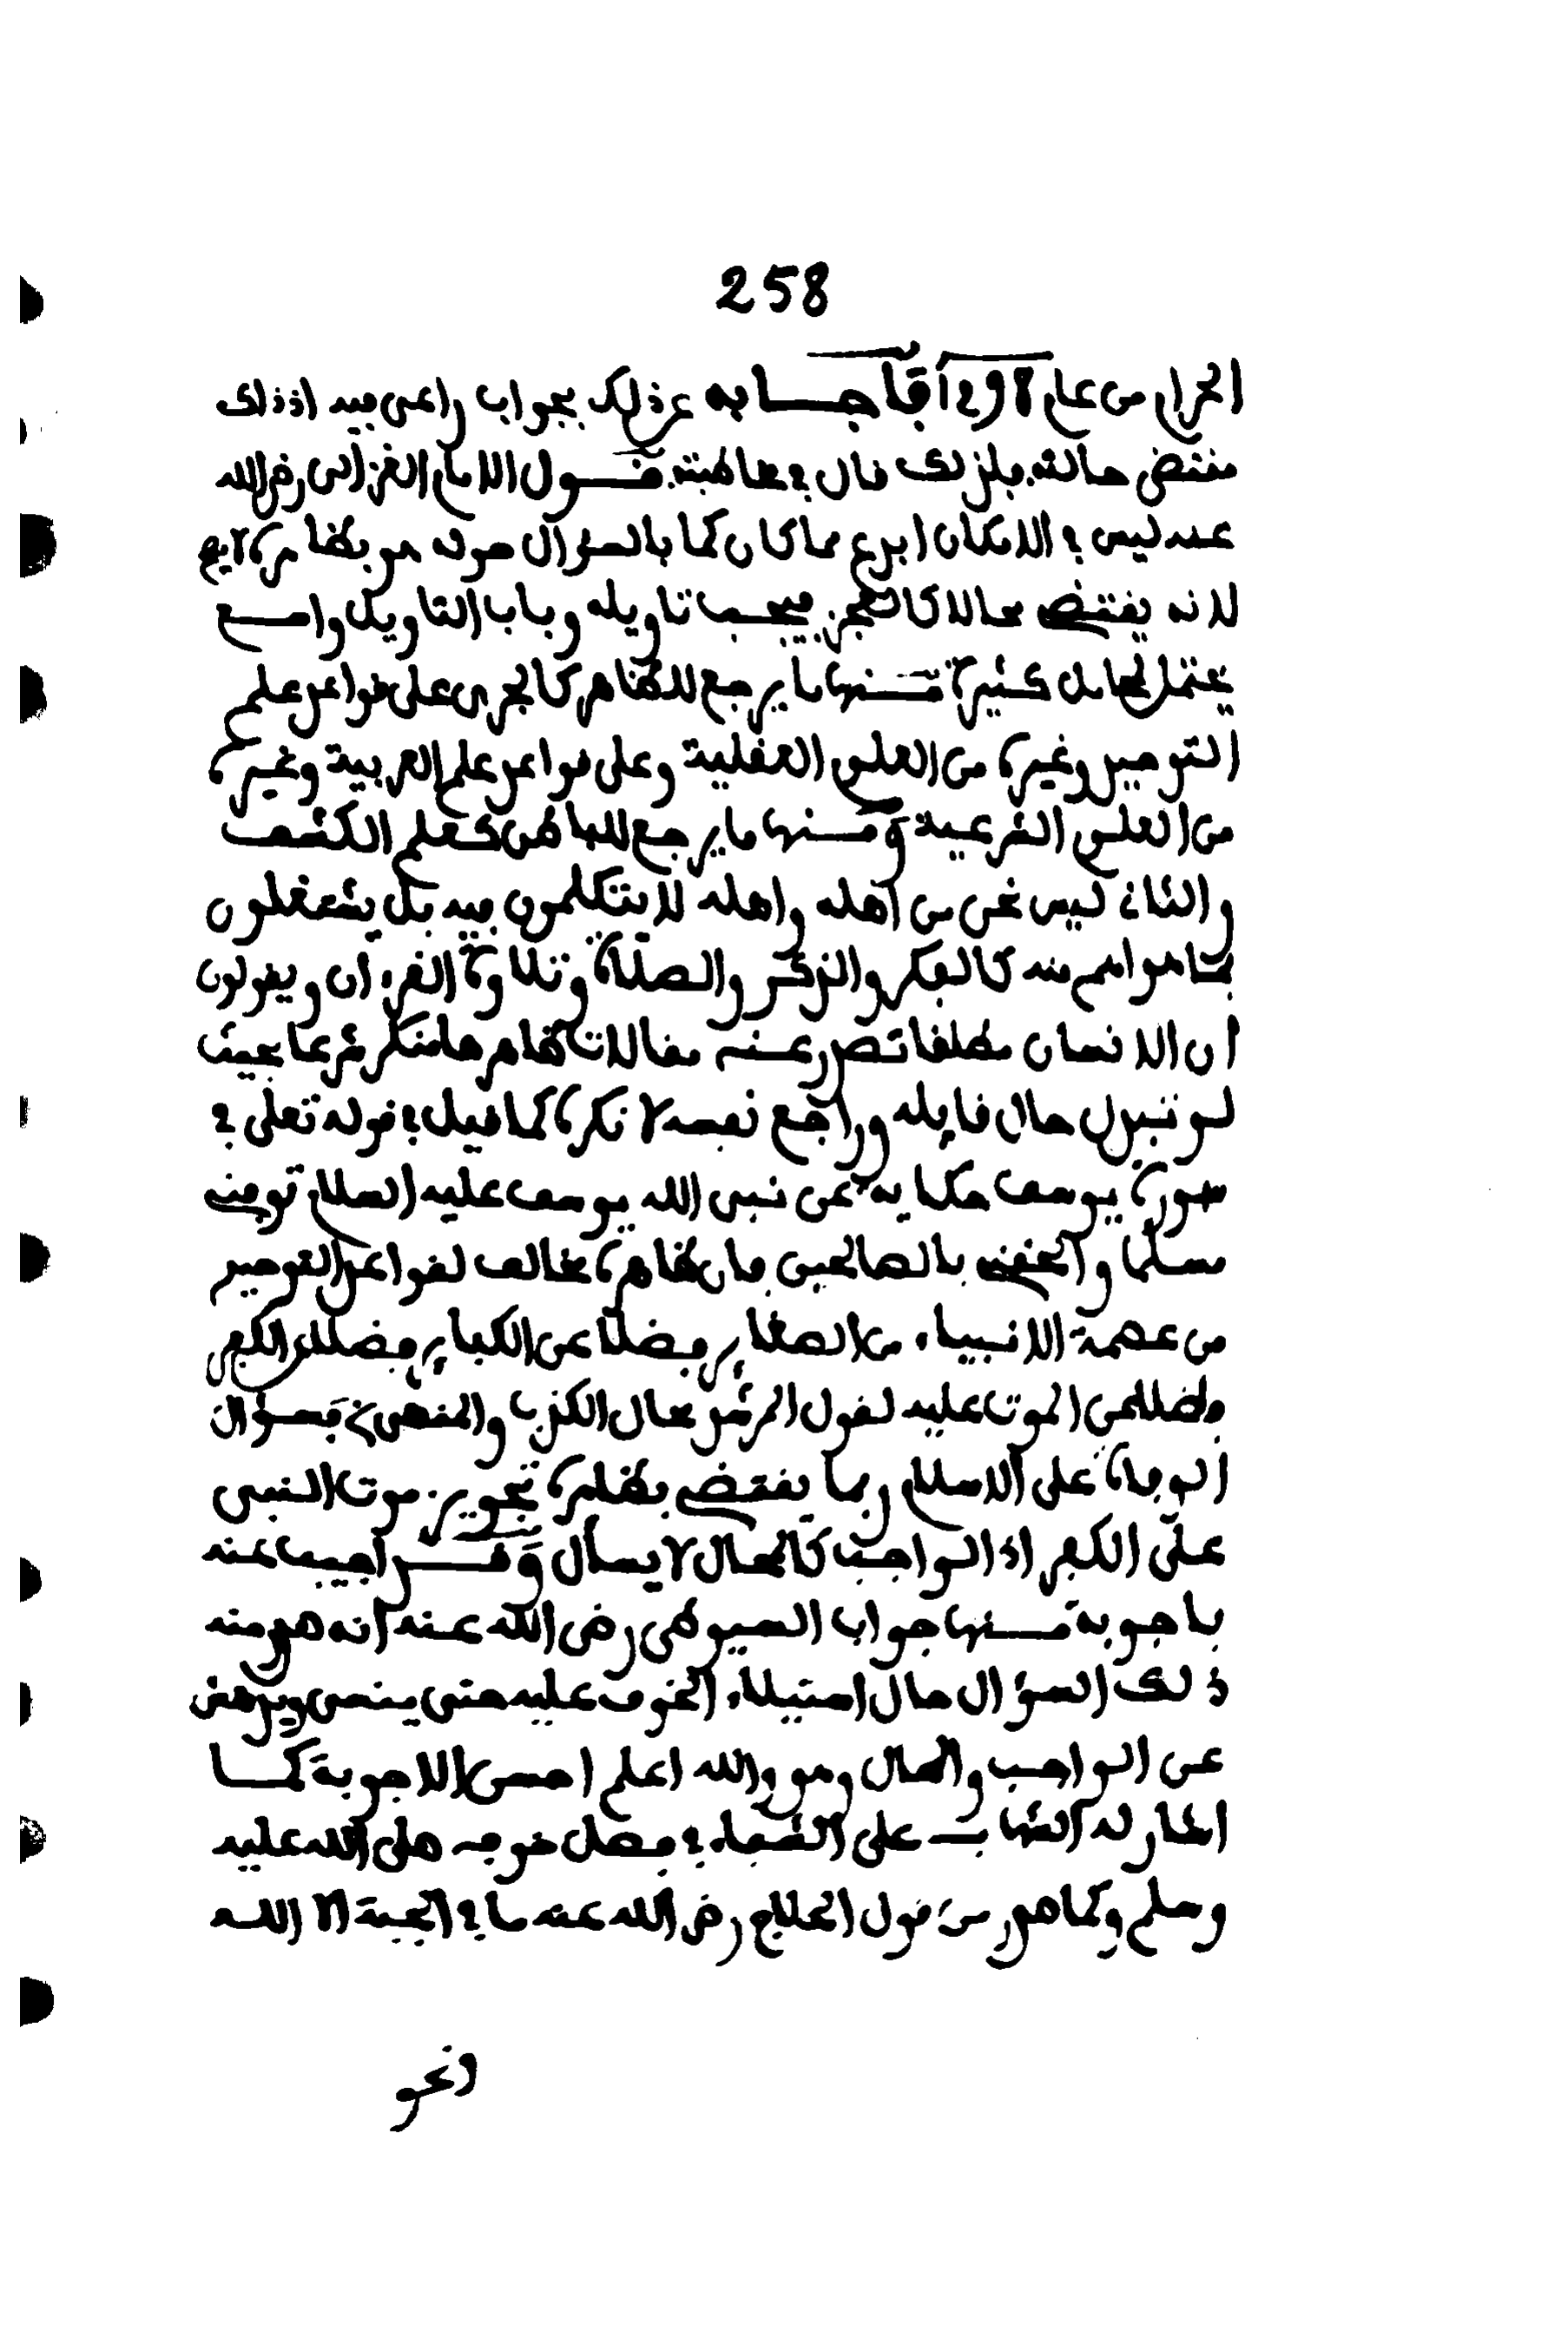 258
الحرام من عام 1298 فأجابه عن ذلك بجواب راعى فيه اذ ذاك
مقتضى حالته فلذلك قال في خاطبته قول الامام الغزالى رضى الله
عنه ليس في الامكان ابدع مما كان كما بالسؤال صوله هو بظاهره
لانه يقتضى محالا كالعجز فيجب تاويله وباب التاويل واسع
يحتمل محامل كثيرة منها ما يرجع للظاهر كالجرى على قواعد علم
التوحيد وغيره من العلوم العقلية وعلى قواعد علم العربية وغيره
من العلوم الشرعية ومنها ما يرجع للباطن كعلم الكشف
والثانى ليس نحن من أهله واهله لا يتكلمون فيه بل يشتغلون
بما هو اهم منه كالفكر والذكر والصلاة وتلاوة القرءان ويقولون
أن الانسان مطلقا تصدر عنه مقالات ظاهرها منكر شرعا بحيث
لو تبدل حال قايله وراجع نفسه لانكره كما قيل في قوله تعلى في
سورة يوسف حكاية عن نبى الله يوسف عليه السلام توفنى
مسلما وألحقنى بالصالحين فان ظاهره مخالف لقواعد التوحيد
من عصمة الانبياء من الصغاير فضلا عن الكباير فضلا عن الكفر
فضلا عن الموت عليه لقول المرشد محال الكذب والمنهى فسؤال
الوفاة على الاسلام ربما يقتضى بظاهره تجويز موت النبى
على الكفر اذ الواجب كالمحال لا يسأل وقد اجيب عنه
باجوبة منها جواب السيوطى رضى الله عنه أنه صدر منه
ذلك السؤال حال استيلاء الخوف عليه حتى ينسى ويذهل
عن الواجب والمحال وهو والله اعلم احسن الاجوبة كما
اشار له الشهاب على الشفاء في فصل خوفه صلى الله عليه
وسلم وكما صدر من قول الحلاج رضى الله عنه ما في الجبة الا الله
ونحو